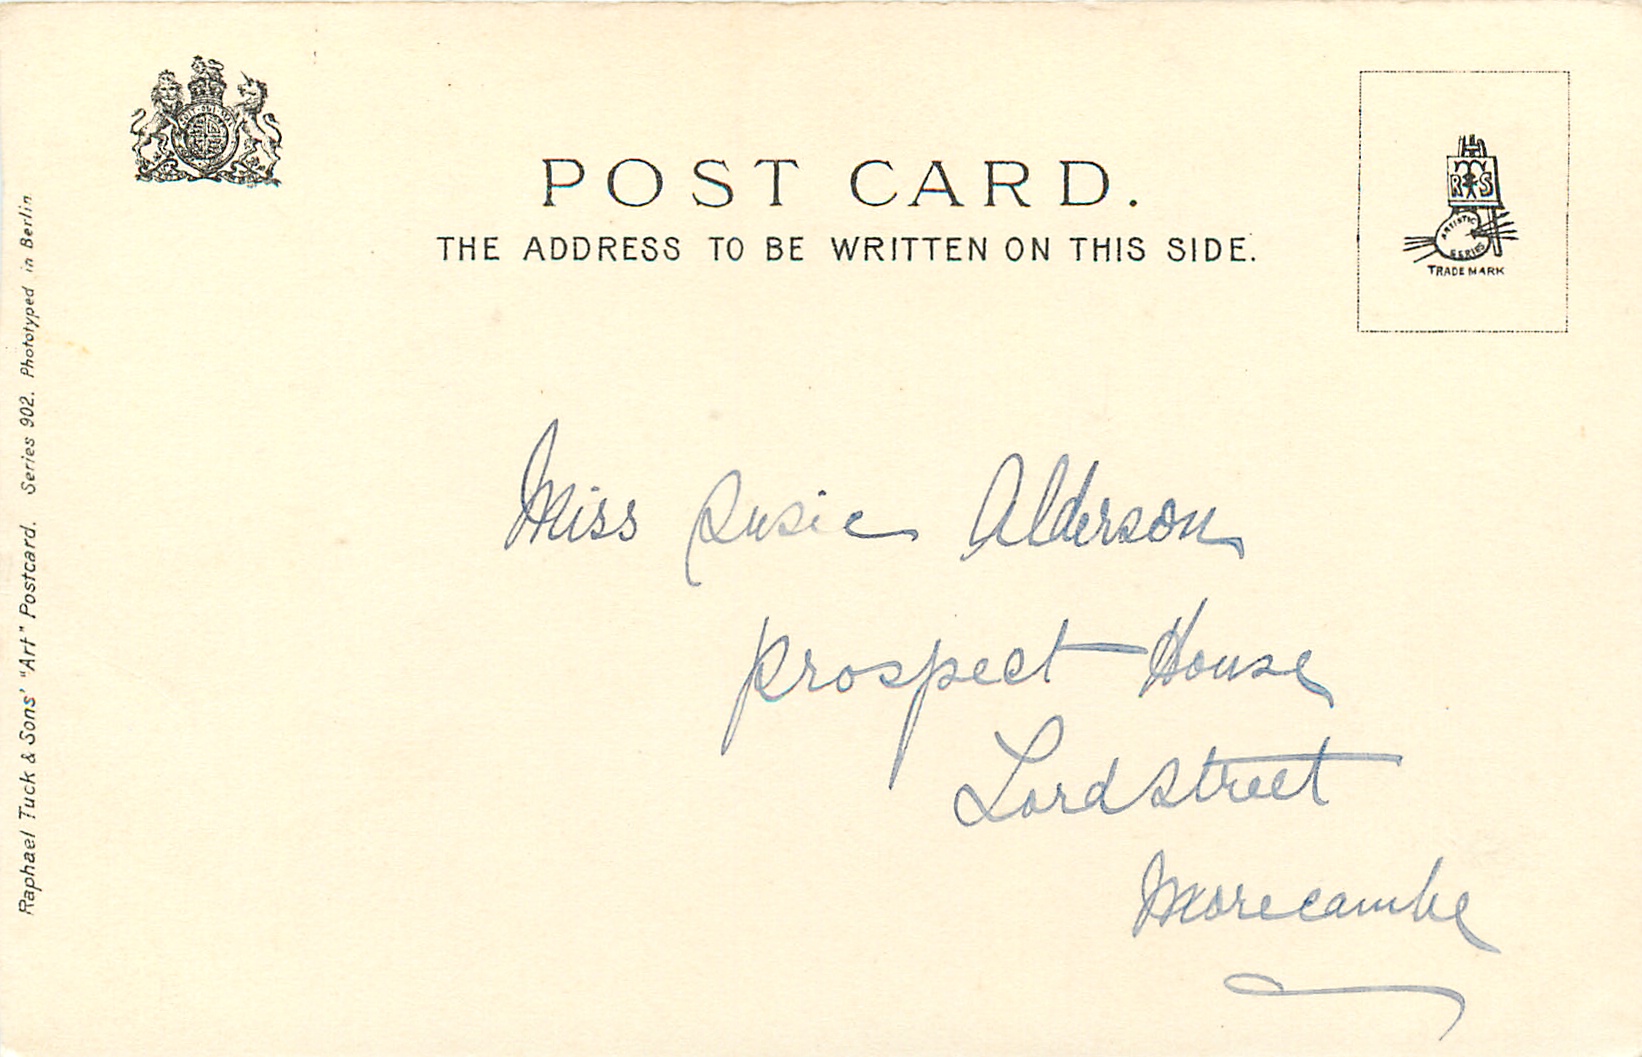 POST CARD.
THE ADDRESS TO BE WRITTEN ON THIS SIDE.
R T S
ARTISTIC
SERIES
TRADE MARK
Raphael Tuck & Sons' "Art" Postcard. Series 902. Phototyped in Berlin
Miss Susie Alderson
Prospect House
Lord Street
Morecambe